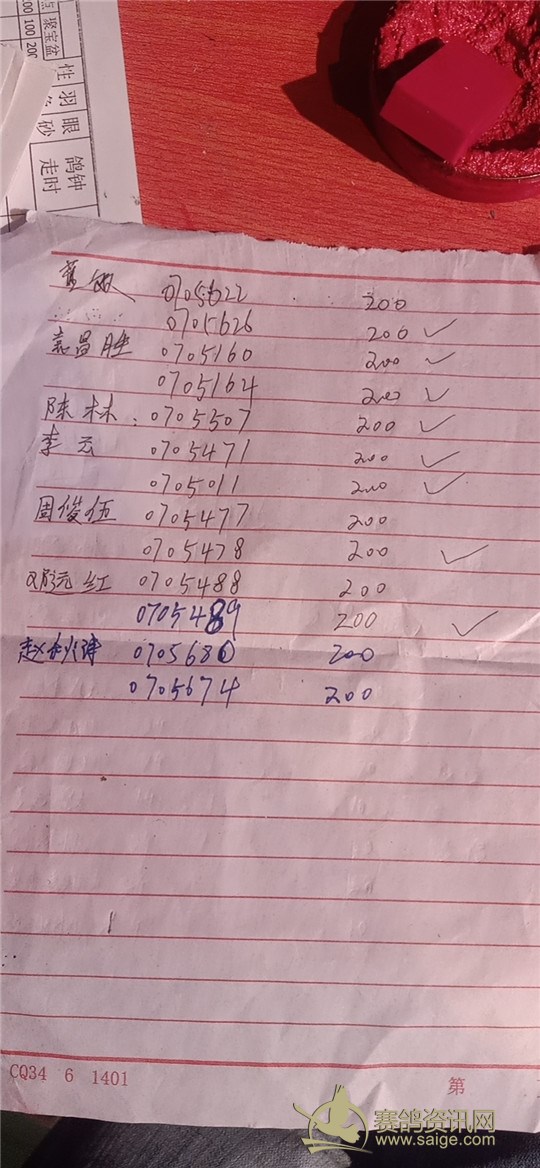 点 聚宝盆
200 100 200
性 羽 眼
砂
鸽钟
走时
0705622 200
0705626 200 ✓
袁昌胜 0705160 200 ✓
0705164 200 ✓
陈林 0705507 200 ✓
李云 0705471 200 ✓
0705011 200 ✓
周俊伍 0705477 200
0705478 200 ✓
邓远红 0705488 200
0705489 200 ✓
赵 0705680 200
0705674 200
CQ34 6 1401
第
赛鸽资讯网
www.saige.com